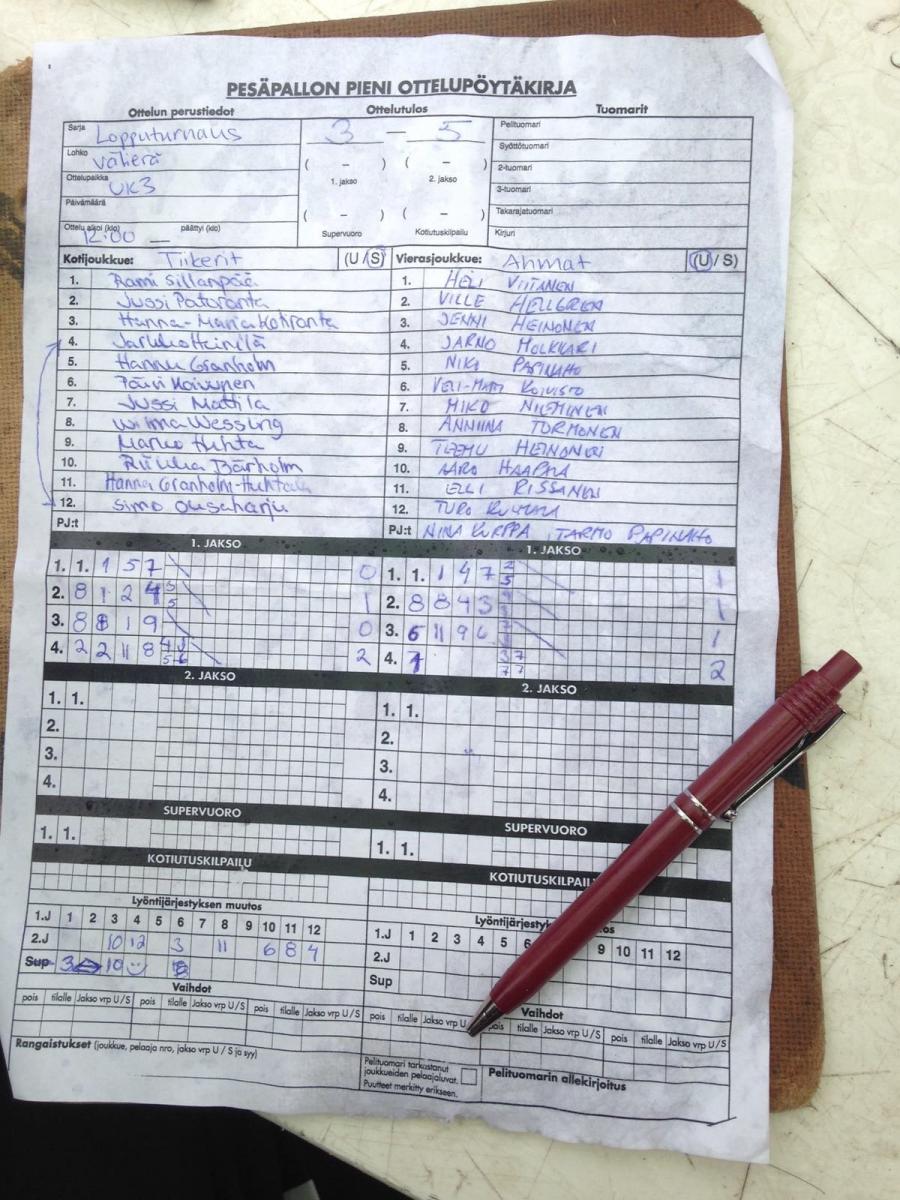 PESÄPALLON PIENI OTTELUPÖYTÄKIRJA
Ottelun perustiedot Ottelutulos Tuomarit
Sarja Lopputurnaus 3 – 5 Pelituomari
Lohko välierä ( – ) ( – ) Syöttötuomari
Ottelupaikka UK3 1. jakso 2. jakso 2-tuomari
Päivämäärä 3-tuomari
( – ) ( – ) Takarajatuomari
Ottelu alkoi (klo) 12.00 päättyi (klo) Supervuoro Kotiutuskilpailu Kirjuri
Kotijoukkue: Tiikerit (U / S) Vierasjoukkue: Ahmat (U / S)
1. Rami Sillanpää 1. HELI VIITANEN
2. Jussi Patoranta 2. VILLE HELLGREN
3. Hanna-Maria Kotiranta 3. JENNI HEINONEN
4. Jarkko Heinilä 4. JARNO MOLKKARI
5. Hannu Granholm 5. NIKO PAPINAHO
6. Päivi 6. VELI-MATTI KOIVISTO
7. Jussi Mattila 7. MIKO NIEMINEN
8. Wilma Wessling 8. ANNIINA TORMONEN
9. Marko Huhta 9. TEEMU HEINONEN
10. Riikka Bärholm 10. AARO HAAPALA
11. Hanna Granholm-Huhtala 11. ELLI RISSANEN
12. Simo 12. TURO
PJ:t PJ:t NINA KURPPA, TARMO PAPINAHO
1. JAKSO 1. JAKSO
1. 1. 1 5 7 0 1. 1. 1 4 7 2 5 1
2. 8 1 2 4 5 5 1 2. 8 8 4 3 1
3. 8 8 1 9 0 3. 6 11 9 6 1
4. 2 2 11 8 2 4. 7 2
2. JAKSO 2. JAKSO
1. 1. 1. 1.
2. 2.
3. 3.
4. 4.
SUPERVUORO SUPERVUORO
1. 1. 1. 1.
KOTIUTUSKILPAILU KOTIUTUSKILPAI
Lyöntijärjestyksen muutos Lyöntijärjestyk os
1.J 1 2 3 4 5 6 7 8 9 10 11 12 1.J 1 2 3 4 5 6 9 10 11 12
2.J 10 12 3 11 6 8 4 2.J
Sup 3 10 8 Sup
Vaihdot Vaihdot
pois tilalle Jakso vrp U / S pois tilalle Jakso vrp U / S pois tilalle Jakso vrp U / S pois tilalle Jakso vrp U pois tilalle Jakso vrp U / S pois tilalle Jakso vrp U / S
Rangaistukset (joukkue, pelaaja nro, jakso vrp U / S ja syy) Pelituomari tarkastanut
joukkueiden pelaajaluvat. Pelituomarin allekirjoitus
Puutteet merkitty erikseen.